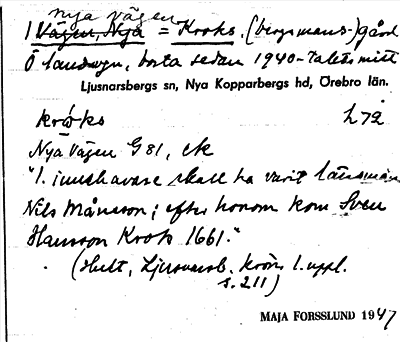 nya vägen
1 Vägen, Nya = Kroks, (bergsmans-)gård
Ö landsvägen, borta sedan 1940-talets mitt
Ljusnarsbergs sn, Nya Kopparbergs hd, Örebro län.
krὼks
Nya Vägen G 81, ek
"1. innehavare skall ha varit länsman
Nils Månsson; efter honom kom Sven
Hansson Krok 1661."
(Hult, Ljusnarsb. krön. 1. uppl.
s. 211)
MAJA FORSSLUND 1947